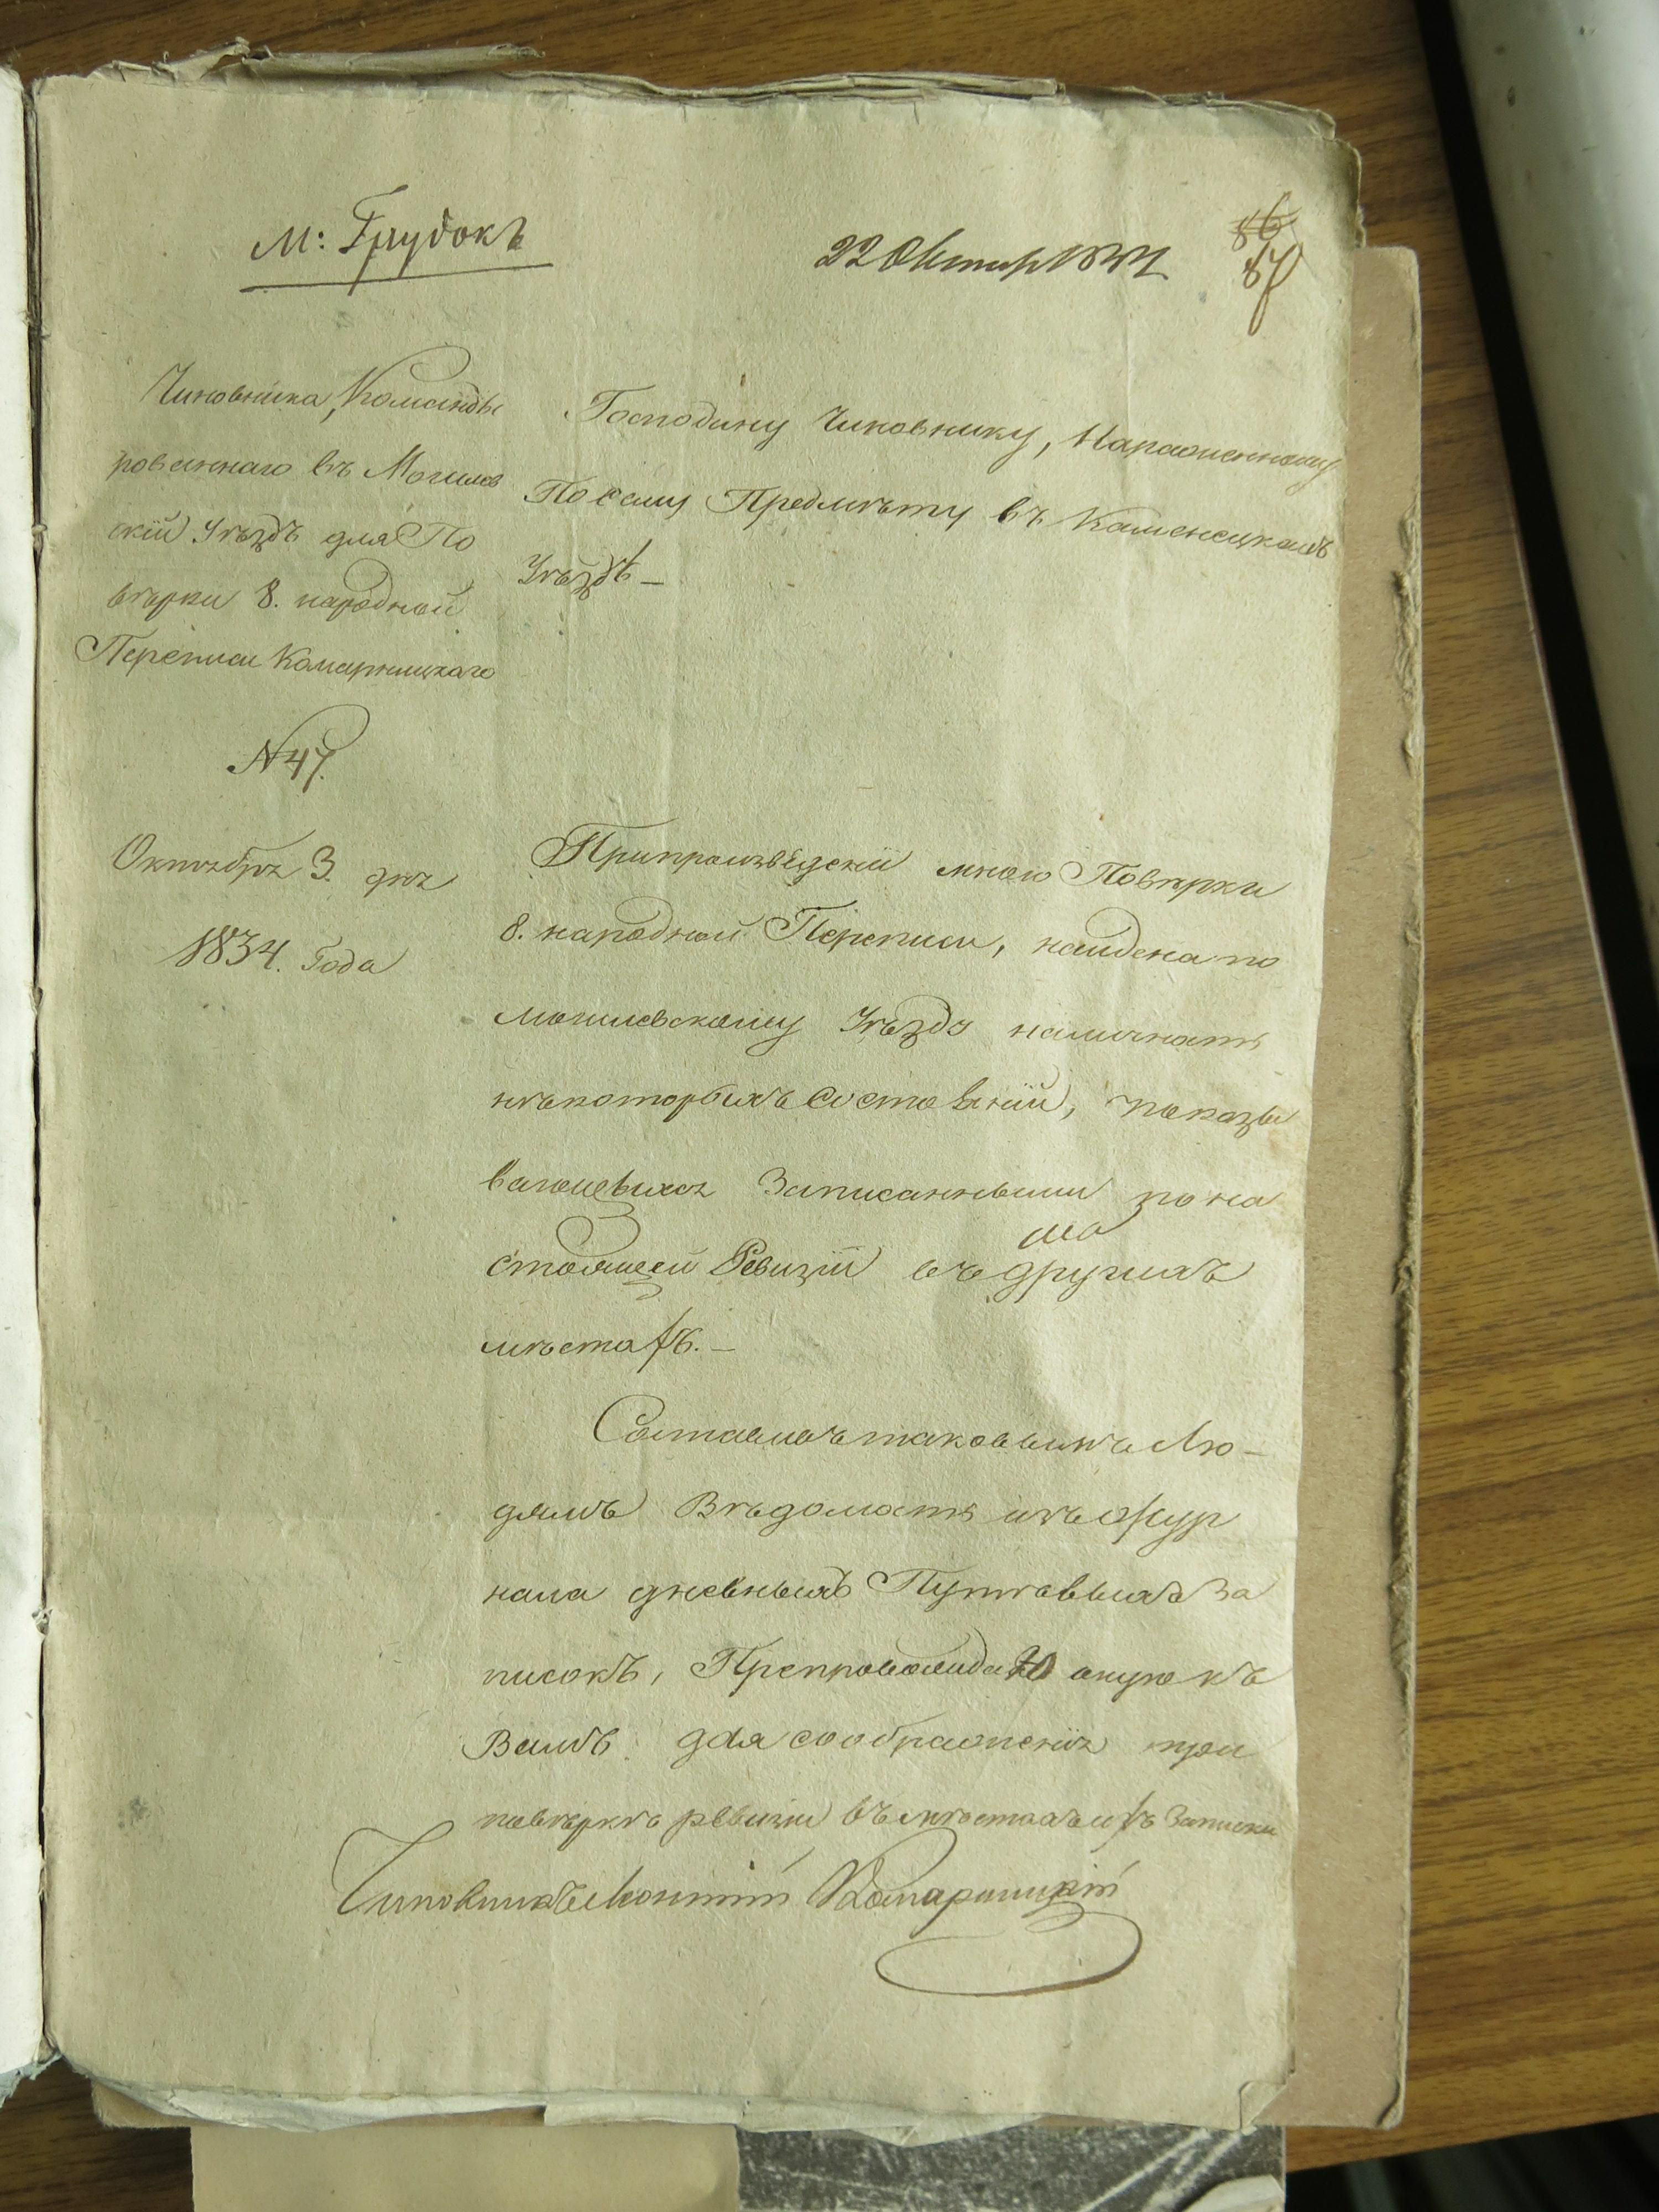 М: Грудокъ
22 Октяр 1834
86
87
Чиновника, Команды
рованнаго въ Могилев
скій Уѣздъ для По
вѣрки 8. народной
Переписи Комарницкаго
N 47.
Октября 3. дня
1834. Года
Господину Чиновнику, Наряженному
По сему Предмѣту въ Каменецкомъ
Уѣздѣ —
При произведеніи мною Повѣрки
8. народной Переписи, найдена по
могилевскому Уѣзду наличность
нѣкоторыхъ Состояній, показы
вающихся Записанными по на
стоящей Ревизіи въ другихъ
мѣстахъ. —
Составивъ таковымъ Лю-
дямъ Вѣдомость изъ Жур
нала дневныхъ Путевыхъ За
писокъ, Препровождаю оную къ
Вамъ для соображенія при
повѣркѣ ревизіи въ мѣстахъ ихъ Записки
Чиновникъ Комарницкій